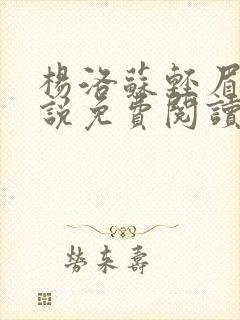 楊洛蘇輕眉
說免費閱讀
勞來壽